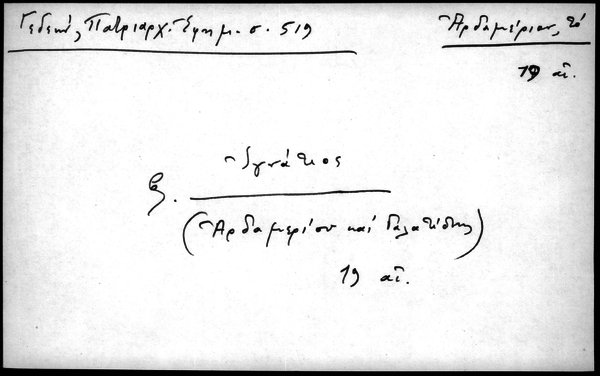 Γεδεών, Πατριαρχ. Ἐφημ. σ. 519
Ἀρδαμέριον, τό
19 αἰ.
Ἰγνάτιος
β.
(Ἀρδαμερίου καί Γαλατίστης)
19 αἰ.